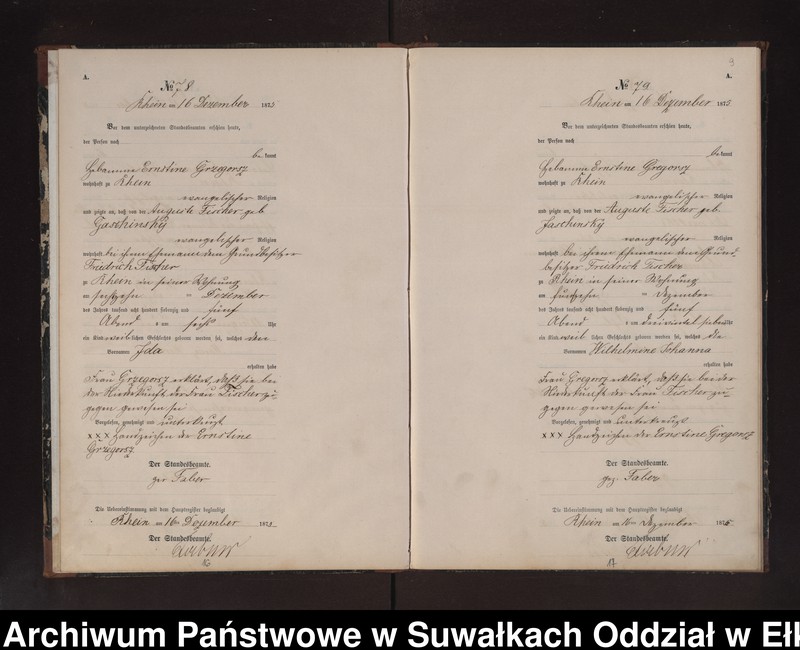 A.
№ 78
Rhein am 16 Dezember 1875
Vor dem unterzeichneten Standesbeamten erschien heute,
der Person nach
be kannt
Hebamme Ernstine Grzegorsz
wohnhaft zu Rhein
evangelischer Religion
und zeigte an, daß von der Auguste Fischer geb.
Gaschinsky
evangelischer Religion
wohnhaft bei ihrem Ehemann dem Grundbesitzer
Friedrich Fischer
zu Rhein in seiner Wohnung
am fünfzehn Dezember
des Jahres tausend acht hundert siebenzig und fünf
Abend um sechs Uhr
ein Kind weiblichen Geschlechts geboren worden sei, welches den
Vornamen Ida
erhalten habe
Frau Grzegorsz erklärt, daß sie bei
der Niederkunft der Frau Fischer zu-
gegen gewesen sei
Vorgelesen, genehmigt und unterkreuzt
XXX Handzeichen der Ernstine
Grzegorsz
Der Standesbeamte.
gez Faber
Die Uebereinstimmung mit dem Hauptregister beglaubigt
Rhein am 16ten Dezember 1875
Der Standesbeamte.
16
9
A.
№ 79
Rhein am 16 Dezember 1875
Vor dem unterzeichneten Standesbeamten erschien heute,
der Person nach
be kannt
Hebamme Ernstine Gregorsz
wohnhaft zu Rhein
evangelischer Religion
und zeigte an, daß von der Auguste Fischer geb.
Jaschinsky
evangelischer Religion
wohnhaft bei ihrem Ehemann dem Grund-
besitzer Friedrich Fischer
zu Rhein in seiner Wohnung
am fünfzehn Dezember
des Jahres tausend acht hundert siebenzig und fünf
Abend um dreiviertel sieben Uhr
ein Kind weiblichen Geschlechts geboren worden sei, welches die
Vornamen Wilhelmine Johanna
erhalten habe
Frau Gregorsz erklärt, daß sie bei der
Niederkunft der Frau Fischer zu-
gegen gewesen sei
Vorgelesen, genehmigt und unterkreuzt
XXX Handzeichen der Ernstine Gregorsz
Der Standesbeamte.
gez. Faber
Die Uebereinstimmung mit dem Hauptregister beglaubigt
Rhein am 16ten Dezember 1875
Der Standesbeamte.
17
Archiwum Państwowe w Suwałkach Oddział w Ełk